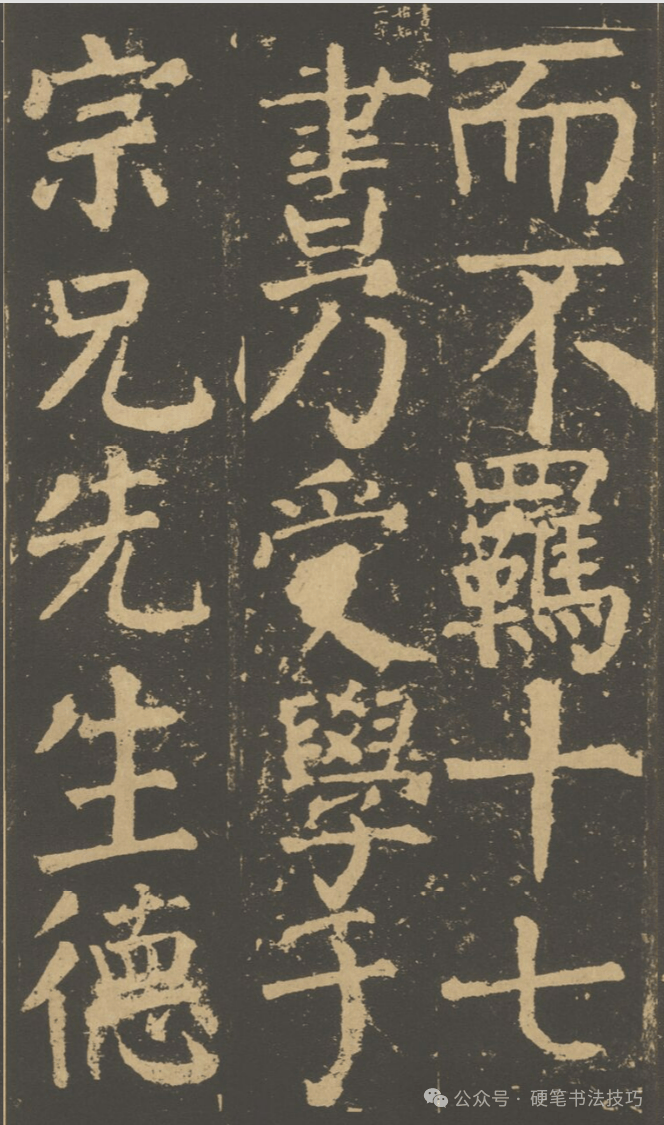 而不羈十七
書乃受學于
宗兄先生德
書上
始知
二字
公众号 · 硬笔书法技巧